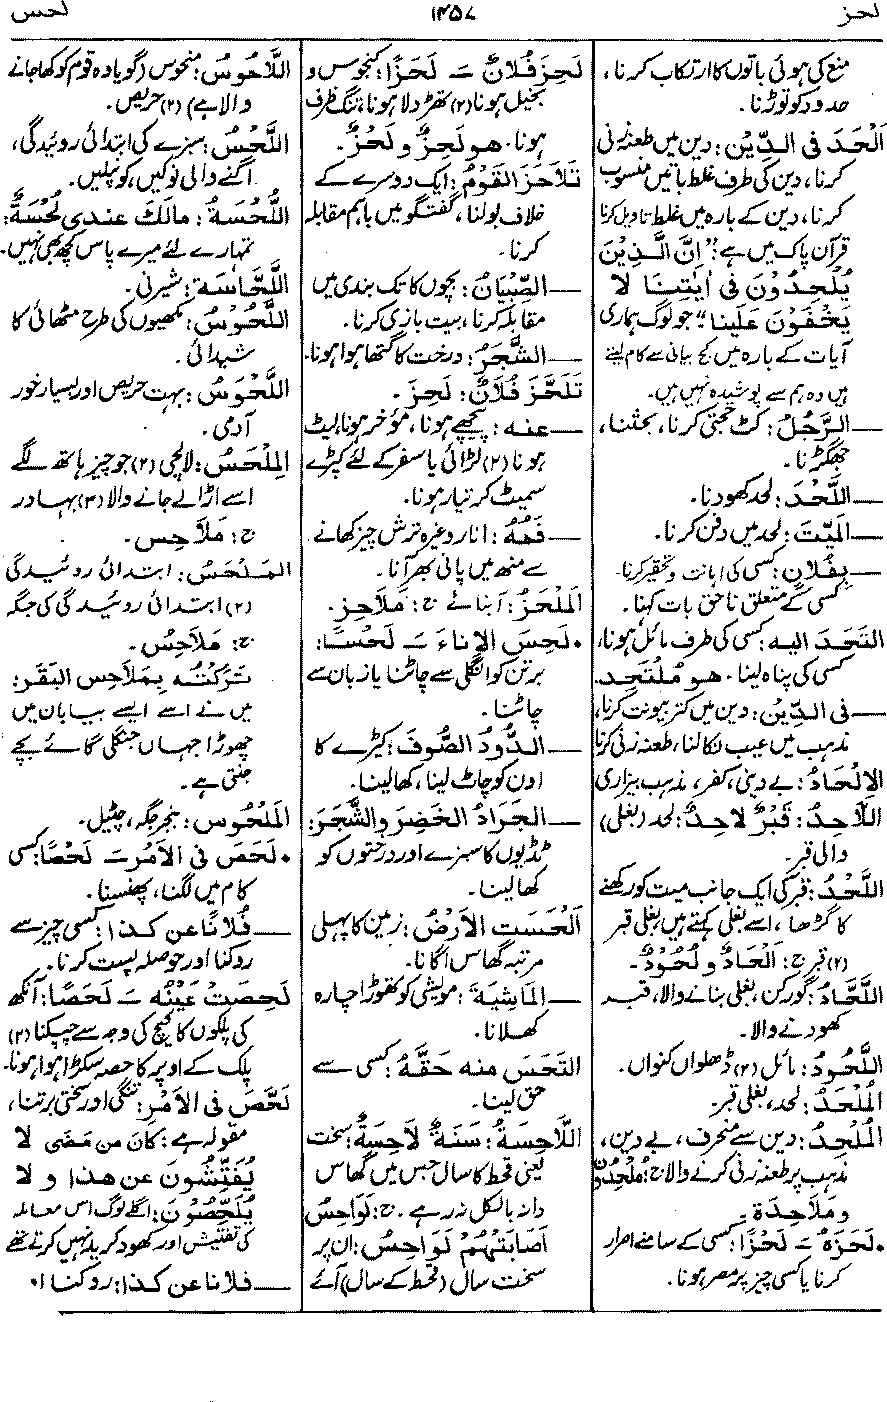 لحز
۱۴۵۷
لحس
منع کی ہوئی باتوں کا ارتکاب کرنا،
حدود کو توڑنا۔
اَلْحَدَ فی الدِّیْنِ: دین میں طعنہ زنی
کرنا، دین کی طرف غلط باتیں منسوب
کرنا، دین کے بارہ میں غلط تاویل کرنا
قرآن پاک میں ہے: "اِنَّ الَّذِیْنَ
یُلْحِدُوْنَ فی اٰیٰتِنَا لَا
یَخْفَوْنَ عَلَیْنَا" جو لوگ ہماری
آیات کے بارہ میں کج بیانی سے کام لیتے
ہیں وہ ہم سے پوشیدہ نہیں ہیں۔
— الرَّجُلُ: کٹ حجتی کرنا، بحثنا،
جھگڑنا۔
— اللَّحْدَ: لحد کھودنا۔
— المَیِّتَ: لحد میں دفن کرنا۔
— بِفُلَانٍ: کسی کی اہانت و تحقیر کرنا۔
کسی کے متعلق ناحق بات کہنا۔
التَحَدَ الیہ: کسی کی طرف مائل ہونا،
کسی کی پناہ لینا۔ ھو مُلْتَحِد۔
— فی الدِّیْنِ: دین میں کتر بیونت کرنا،
مذہب میں عیب نکالنا، طعنہ زنی کرنا
الاِلْحَادُ: بے دینی، کفر، مذہب بیزاری
اللَّاحِدُ: قَبْرٌ لَاحِدٌ: لحد (بغلی)
والی قبر۔
اللَّحْدُ: قبر کی ایک جانب میت کو رکھنے
کا گڑھا، اسے بغلی کہتے ہیں بغلی قبر
(۲) قبر ج: اَلْحَادٌ و لُحُوْدٌ۔
اللَّحَّادُ: گورکن، بغلی بنانے والا، قبر
کھودنے والا۔
اللَّحُوْدُ: مائل (۲) ڈھلواں کنواں۔
المُلْحَدُ: لحد، بغلی قبر۔
المُلْحِدُ: دین سے منحرف، بے دین،
مذہب پر طعنہ زنی کرنے والا ج: مُلْحِدُوْنَ
و مَلَاحِدَۃ۔
• لَحَزَہُ ـَ لَحْزًا: کسی کے سامنے اصرار
کرنا یا کسی چیز پر مصر ہونا۔
لَحِزَ فُلَانٌ ـَ لَحَزًا: کنجوس و
بخیل ہونا (۲) تھڑدلا ہونا، تنگ ظرف
ہونا۔ ھو لَحِزٌ و لَحْزٌ۔
تَلَاحَزَ القَوْمُ: ایک دوسرے کے
خلاف بولنا، گفتگو میں باہم مقابلہ
کرنا۔
— الصِّبْیَانُ: بچوں کا تک بندی میں
مقابلہ کرنا، بیت بازی کرنا۔
— الشَّجَرُ: درخت کا گتھا ہوا ہونا۔
تَلَحَّزَ فُلَانٌ: لَحِزَ۔
— عنہ: پیچھے ہونا، مؤخر ہونا، لیٹ
ہونا (۲) لڑائی یا سفر کے لئے کپڑے
سمیٹ کر تیار ہونا۔
— فَمُہُ: انار وغیرہ ترش چیز کھانے
سے منھ میں پانی بھر آنا۔
المَلْحَزُ: آبنائے ج: مَلَاحِز۔
• لَحِسَ الاِنَاءَ ـَ لَحْسًا:
برتن کو انگلی سے چاٹنا یا زبان سے
چاٹنا۔
— الدُّوْدُ الصُّوْفَ: کیڑے کا
اون کو چاٹ لینا، کھا لینا۔
— الجَرَادُ الخَضِرَ والشَّجَرَ:
ٹڈیوں کا سبزے اور درختوں کو
کھا لینا۔
اَلْحَسَتِ الاَرْضُ: زمین کا پہلی
مرتبہ گھاس اگانا۔
— المَاشِیَۃَ: مویشی کو تھوڑا چارہ
کھلانا۔
التَحَسَ منہ حَقَّہُ: کسی سے
حق لینا۔
اللَّاحِسَۃُ: سَنَۃٌ لَاحِسَۃٌ: سخت
یعنی قحط کا سال جس میں گھاس
دانہ بالکل نہ رہے۔ ج: لَوَاحِسُ
اَصَابَتْہُمْ لَوَاحِسُ: ان پر
سخت سال (قحط کے سال) آئے
اللَّاحُوْسُ: منحوس (گویا وہ قوم کو کھا جانے
والا ہے) (۲) حریص۔
اللَّحْسُ: سبزے کی ابتدائی روئیدگی،
اگنے والی نوکیں، کونپلیں۔
اللُّحْسَۃُ: مالَکَ عندی لُحْسَۃٌ:
تمہارے لئے میرے پاس کچھ بھی نہیں۔
اللَّحَّاسَۃ: شیرنی۔
اللَّحُوْسُ: مکھیوں کی طرح مٹھائی کا
شیدائی۔
اللَّحْوَسُ: بہت حریص اور بسیار خور
آدمی۔
المِلْحَسُ: لالچی (۲) جو چیز ہاتھ لگے
اسے اڑا لے جانے والا (۳) بہادر
ج: مَلَاحِس۔
المَلْحَسُ: ابتدائی روئیدگی
(۲) ابتدائی روئیدگی کی جگہ
ج: مَلَاحِسُ۔
تَرَکْتُہ بِمَلَاحِسِ البَقَرِ:
میں نے اسے ایسے بیابان میں
چھوڑا جہاں جنگلی گائے بچے
جنتی ہے۔
المَلْحُوس: بنجر جگہ، چٹیل۔
• لَحَصَ فی الاَمْرِ ـَ لَحْصًا: کسی
کام میں لگنا، پھنسنا۔
— فُلَانًا عن کَذَا: کسی چیز سے
روکنا اور حوصلہ پست کرنا۔
لَحِصَتْ عَیْنُہ ـَ لَحَصًا: آنکھ
کی پلکوں کا کیچ کی وجہ سے چپکنا (۲)
پلک کے اوپر کا حصہ سکڑا ہوا ہونا۔
لَحَّصَ فی الاَمْرِ: تنگی اور سختی برتنا،
مقولہ ہے: کَانَ مَن مَضَی لَا
یُفَتِّشُوْنَ عن ھذا و لَا
یُلَحِّصُوْنَ: اگلے لوگ اس معاملہ
کی تفتیش اور کھود کرید نہیں کرتے تھے
— فُلَانًا عن کَذَا: روکنا ا۔